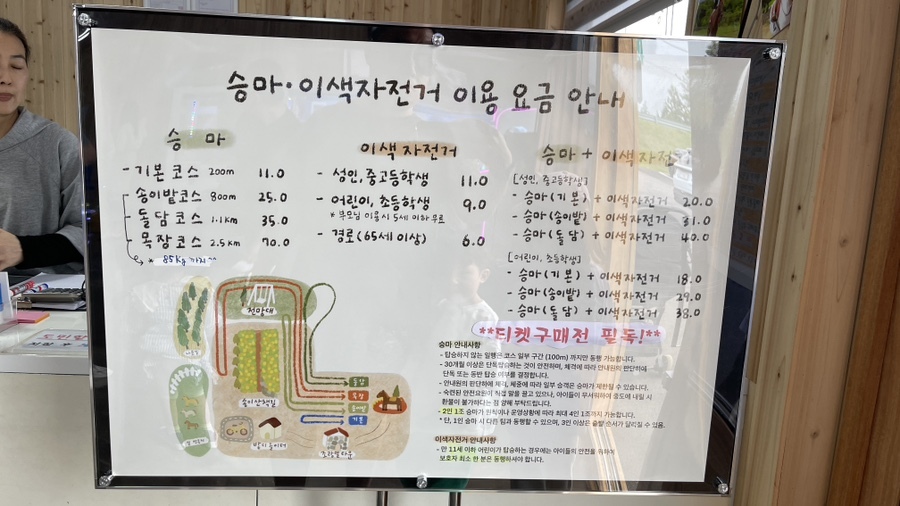 승마·이색자전거 이용 요금 안내
승 마
- 기본 코스 200m 11.0
송이밭코스 800m 25.0
돌담코스 1.1km 35.0
목장코스 2.5km 70.0
* 85kg 까지^^
이색자전거
- 성인, 중고등학생 11.0
- 어린이, 초등학생 9.0
* 부모님 이용시 5세 이하 무료
- 경로(65세 이상) 6.0
승마 + 이색자전거
[성인, 중고등학생]
- 승마(기본) + 이색자전거 20.0
- 승마(송이밭) + 이색자전거 31.0
- 승마(돌담) + 이색자전거 40.0
[어린이, 초등학생]
- 승마(기본) + 이색자전거 18.0
- 승마(송이밭) + 이색자전거 29.0
- 승마(돌담) + 이색자전거 38.0
**티켓구매전 필독!**
승마 안내사항
- 탑승하지 않는 일행은 코스 일부 구간 (100m) 까지만 동행 가능합니다.
- 30개월 이상은 단독탑승하는 것이 안전하며, 체격에 따라 안내원의 판단하에
단독 또는 동반 탑승 여부를 결정합니다.
- 안내원의 판단하에 체격, 체중에 따라 일부 승객은 승마가 제한될 수 있습니다.
- 숙련된 안전요원이 직접 말을 끌고 있으나, 아이들이 무서워하여 중도에 내릴 시
환불이 불가하다는 점 양해 부탁드립니다.
- 2인 1조 승마가 원칙이나 운영상황에 따라 최대 4인 1조까지 가능합니다.
* 단, 1인 승마 시 다른 팀과 동행할 수 있으며, 3인 이상은 출발 순서가 달라질 수 있음.
이색자전거 안내사항
- 만 11세 이하 어린이가 탑승하는 경우에는 아이들의 안전을 위하여
보호자 최소 한 분은 동행하셔야 합니다.
전망대
송이산책길
돌담
목장
송이밭
기본
방이놀이터